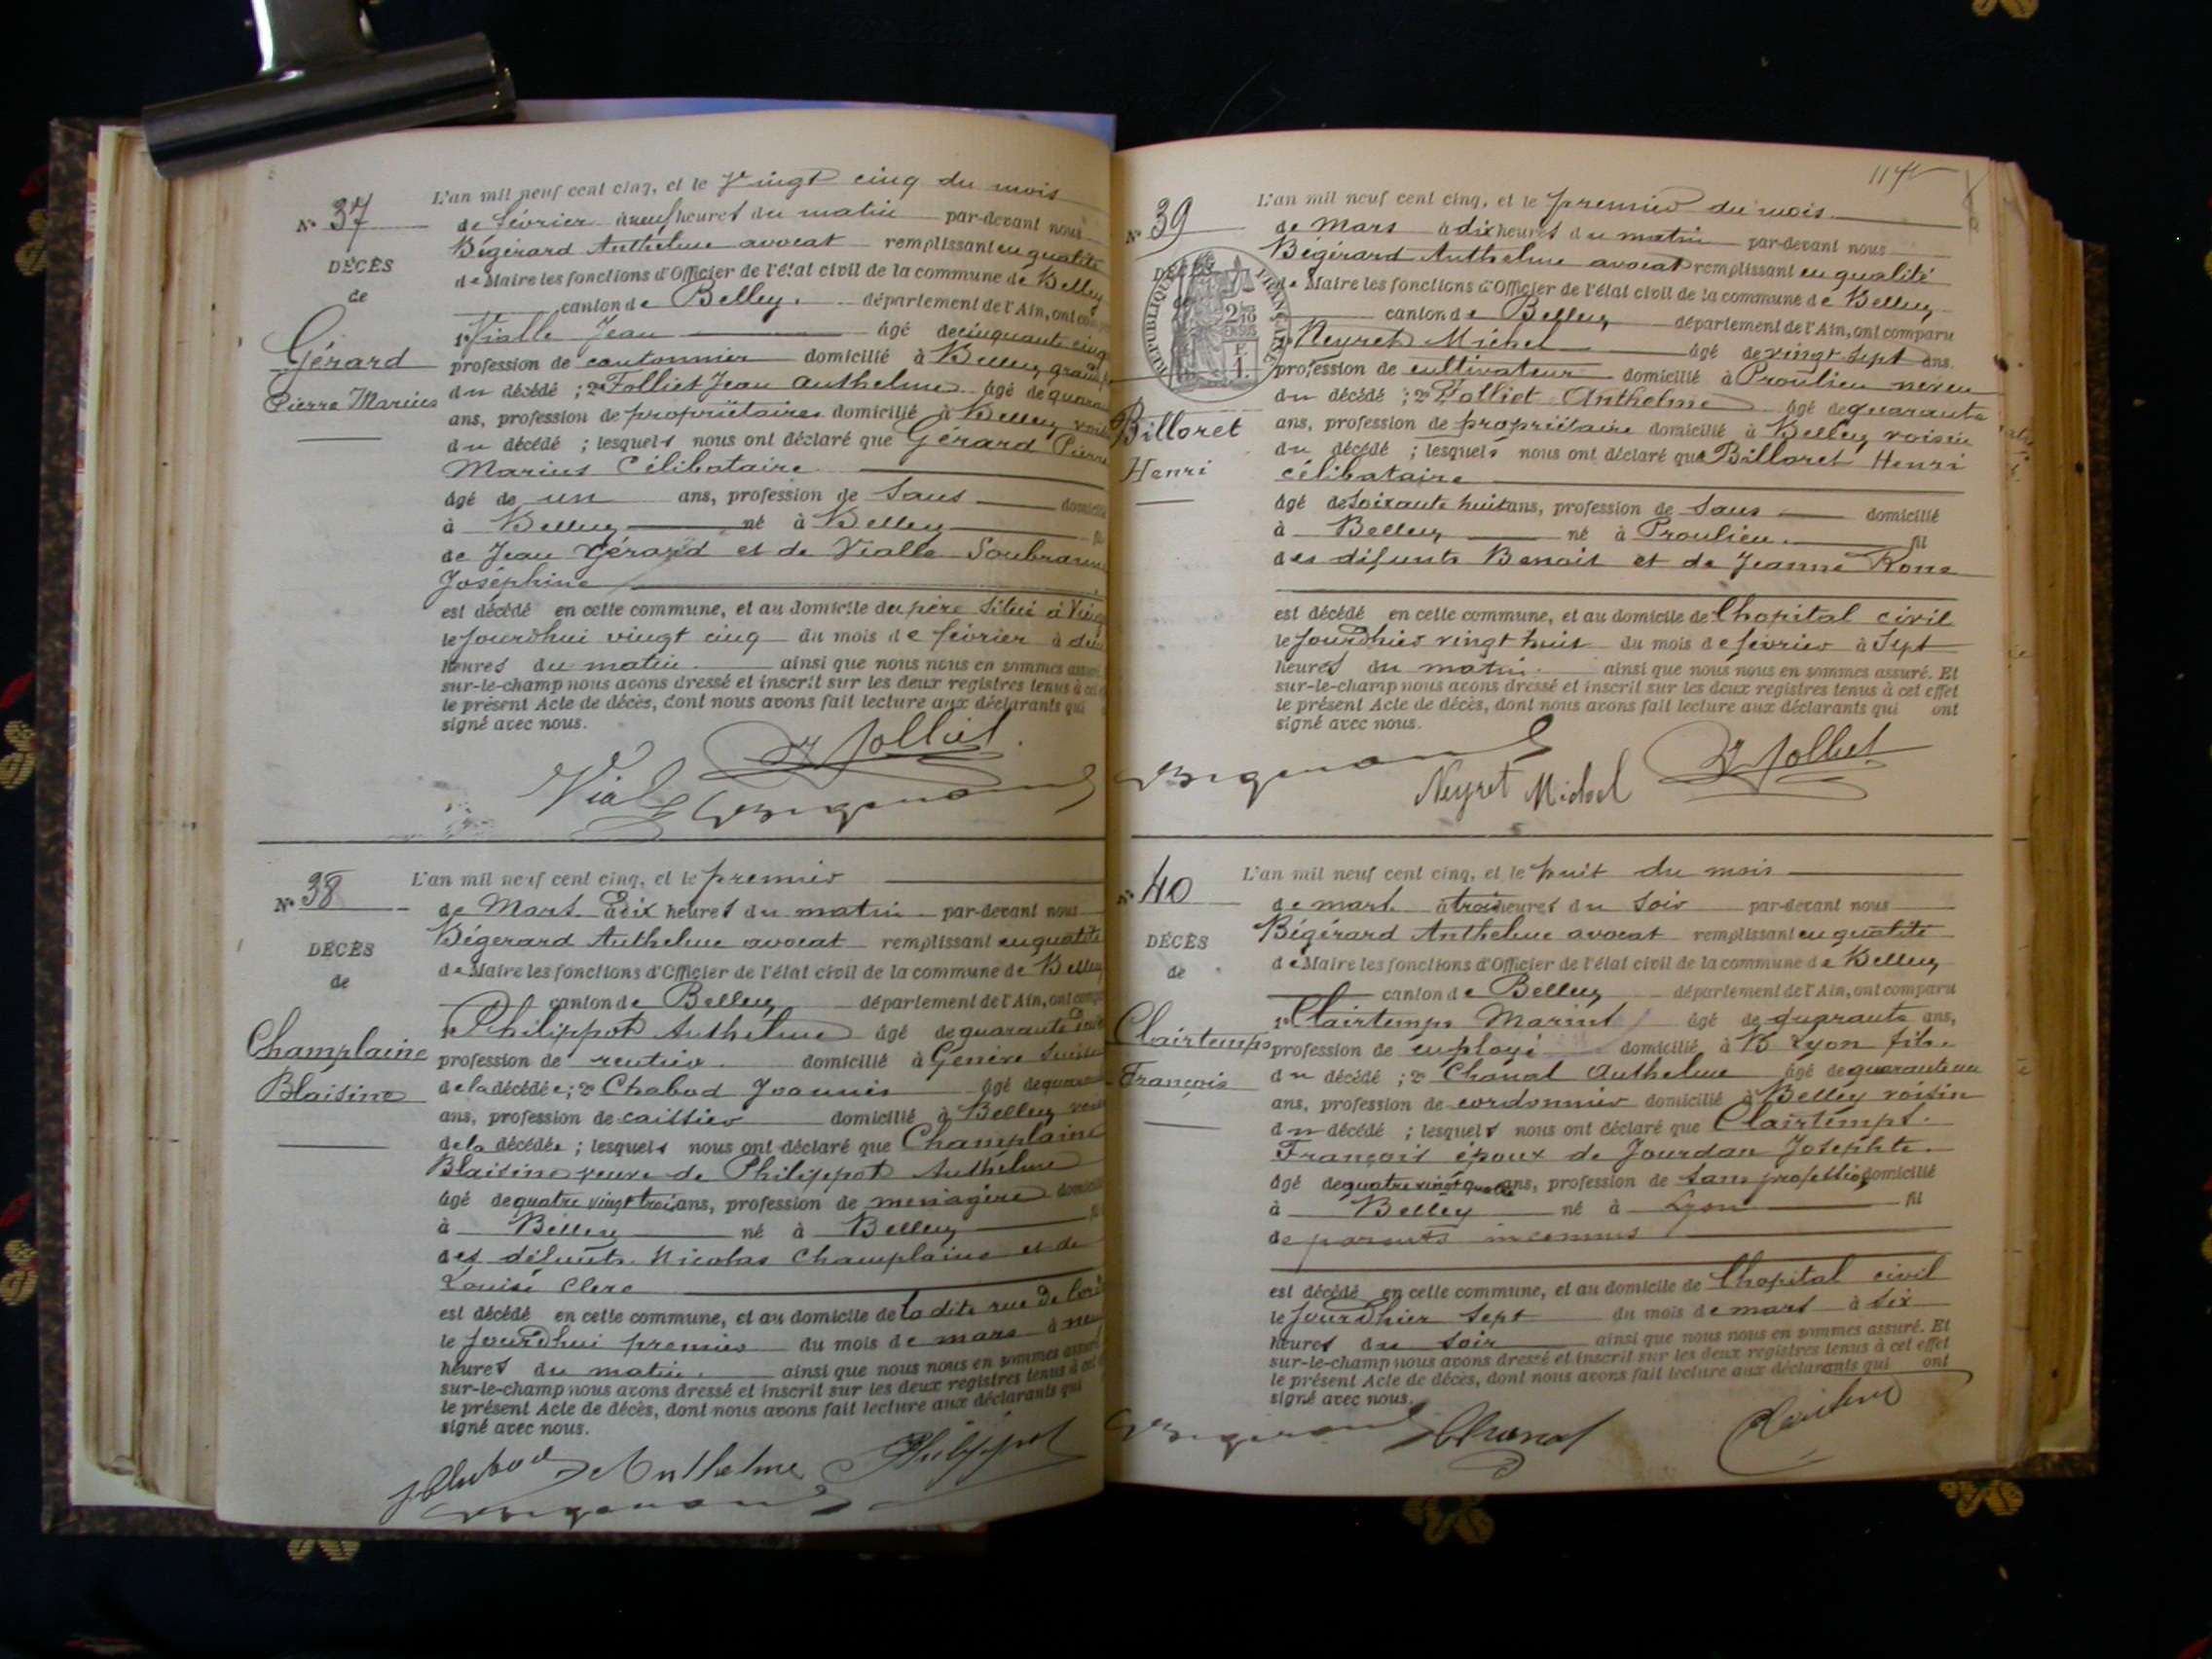 L'an mil neuf cent cinq, et le Vingt cinq du mois
N° 37
de février à neuf heures du matin par-devant nous
Bégérard Anthelme avocat remplissant en qualité
DÉCÈS
de Maire les fonctions d'Officier de l'état civil de la commune de Belley
de
canton de Belley. département de l'Ain, ont
1° Vialle Jean âgé de cinquante cinq
Gérard
profession de cantonnier domicilié à Belley grand
Pierre Marius
du décédé ; 2° Folliet Jean Anthelme âgé de
ans, profession de propriétaires domicilié à Belley
du décédé ; lesquels nous ont déclaré que Gérard Pierre
Marius Célibataire
âgé de un ans, profession de Sans
à Belley né à Belley
de Jean Gérard et de Vialle
Joséphine
est décédé en cette commune, et au domicile du père situé à
le jourdhui vingt cinq du mois de février à
heures du matin. ainsi que nous nous en sommes
sur-le-champ nous avons dressé et inscrit sur les deux registres tenus à
le présent Acte de décès, dont nous avons fait lecture aux déclarants qui
signé avec nous.
Folliet
Vial
L'an mil neuf cent cinq, et le premier
N° 38
de Mars à dix heures du matin par-devant nous
Bégerard Anthelme avocat remplissant en qualité
DÉCÈS
de Maire les fonctions d'Officier de l'état civil de la commune de Belley
de
canton de Belley département de l'Ain, ont
1° Philippot Anthelme âgé de quarante
Champlaine
profession de rentier domicilié à Genève Suisse
Blaisine
de la décédée ; 2° Chabod Joannès âgé de
ans, profession de caissier domicilié à Belley
de la décédée ; lesquels nous ont déclaré que Champlaine
Blaisine veuve de Philippot Anthelme
âgé de quatre vingt trois ans, profession de ménagère
à Belley né à Belley
des défunts Nicolas Champlaine et de
Louise Clerc
est décédé en cette commune, et au domicile de la dite rue de
le jourdhui premier du mois de mars à
heures du matin. ainsi que nous nous en sommes
sur-le-champ nous avons dressé et inscrit sur les deux registres tenus à
le présent Acte de décès, dont nous avons fait lecture aux déclarants qui
signé avec nous.
J Chabod Anthelme Philippot
114
L'an mil neuf cent cinq, et le premier du mois
N° 39
de Mars à dix heures du matin par-devant nous
Bégérard Anthelme avocat remplissant en qualité
DÉCÈS
RÉPUBLIQUE FRANÇAISE
de Maire les fonctions d'Officier de l'état civil de la commune de Belley
canton de Belley département de l'Ain, ont comparu
Neyret Michel âgé de vingt sept ans.
profession de cultivateur domicilié à Proulieu neveu
du décédé ; 2° Folliet Anthelme âgé de quarante
Billoret
ans, profession de propriétaire domicilié à Belley voisin
du décédé ; lesquels nous ont déclaré que Billoret Henri
Henri
célibataire
âgé de Soixante huit ans, profession de Sans domicilié
à Belley né à Proulieu. fil
des défunts Benoit et de Jeanne
est décédé en cette commune, et au domicile de l'hopital civil
le jourdhier vingt huit du mois de février à Sept
heures du matin ainsi que nous nous en sommes assuré. Et
sur-le-champ nous avons dressé et inscrit sur les deux registres tenus à cet effet
le présent Acte de décès, dont nous avons fait lecture aux déclarants qui ont
signé avec nous.
Neyret Michel Folliet
L'an mil neuf cent cinq, et le huit du mois
N° 40
de mars à trois heures du Soir par-devant nous
Bégérard Anthelme avocat remplissant en qualité
DÉCÈS
de Maire les fonctions d'Officier de l'état civil de la commune de Belley
de
canton de Belley département de l'Ain, ont comparu
1° Clairtemps Marius âgé de quarante ans,
Clairtemps
profession de employé domicilié à Lyon fils.
François
du décédé ; 2° Chanal Anthelme âgé de quarante un
ans, profession de cordonnier domicilié à Belley voisin
du décédé ; lesquels nous ont déclaré que Clairtemps.
François époux de Jourdan Josephte.
âgé de quatre vingt quatre ans, profession de Sans profession domicilié
à Belley né à Lyon fil
de parents inconnus
est décédé en cette commune, et au domicile de l'hopital civil
le jourdhier Sept du mois de mars à Six
heures du Soir ainsi que nous nous en sommes assuré. Et
sur-le-champ nous avons dressé et inscrit sur les deux registres tenus à cet effet
le présent Acte de décès, dont nous avons fait lecture aux déclarants qui ont
signé avec nous.
Chanal